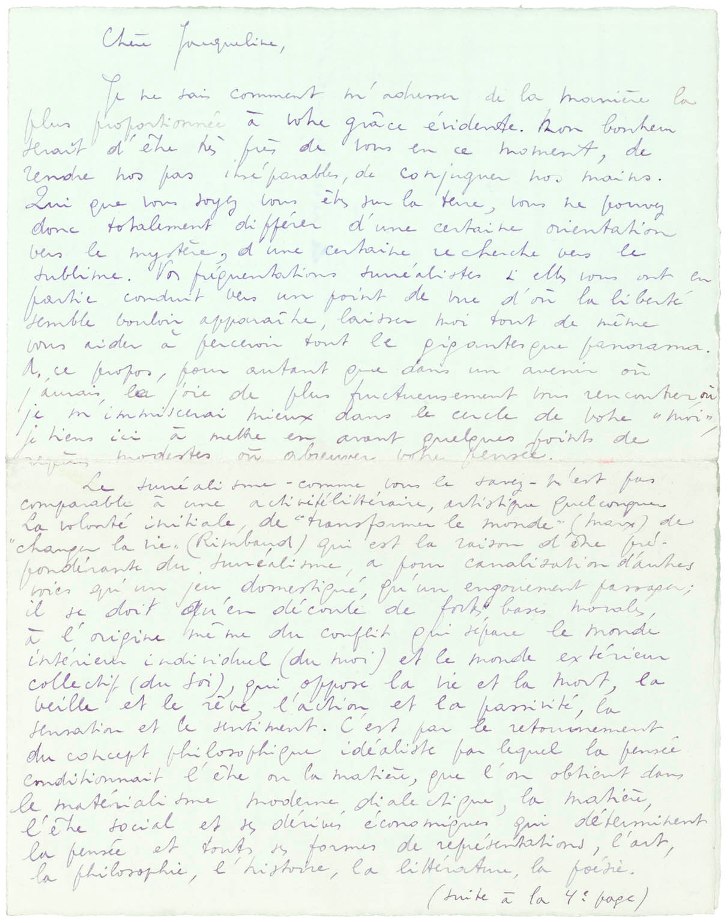 Chère Jacqueline,
Je ne sais comment m'adresser de la manière la
plus proportionnée à votre grâce évidente. Mon bonheur
serait d'être très près de vous en ce moment, de
rendre nos pas inséparables, de conjuguer nos mains.
Qui que vous soyez vous êtes sur la terre, vous ne pouvez
donc totalement différer d'une certaine orientation
vers le mystère, d'une certaine recherche vers le
sublime. Vos fréquentations surréalistes si elles vous ont en
partie conduit vers un point de vue d'où la liberté
semble vouloir apparaître, laisser moi tout de même
vous aider à percevoir tout le gigantesque panorama.
A ce propos, pour autant que dans un avenir où
j'aurais, la joie de plus fructueusement vous rencontrer, où
je m'immiscerai mieux dans le cercle de votre "moi",
je tiens ici à mettre en avant quelques points de
modestes où abreuver votre pensée.
Le surréalisme - comme vous le savez - n'est pas
comparable à une activité littéraire, artistique quelconque
La volonté initiale, de "transformer le monde" (Marx) de
"changer la vie" (Rimbaud) qui est la raison d'être pré-
pondérante du surréalisme, a pour canalisation d'autres
voies qu'un jeu domestiqué, qu'un engouement passager;
il se doit qu'en découle de fortes bases morales,
à l'origine même du conflit qui sépare le monde
intérieur individuel (du moi) et le monde extérieur
collectif (du soi), qui oppose la vie et la mort, la
veille et le rêve, l'action et la passivité, la
sensation et le sentiment. C'est par le retournement
du concept philosophique idéaliste par lequel la pensée
conditionnait l'être ou la matière, que l'on obtient dans
le matérialisme moderne dialectique, la matière,
l'être social et ses dérivés économiques qui déterminent
la pensée et toutes ses formes de représentations, l'art,
la philosophie, l'histoire, la littérature, la poésie.
(suite à la 4e page)